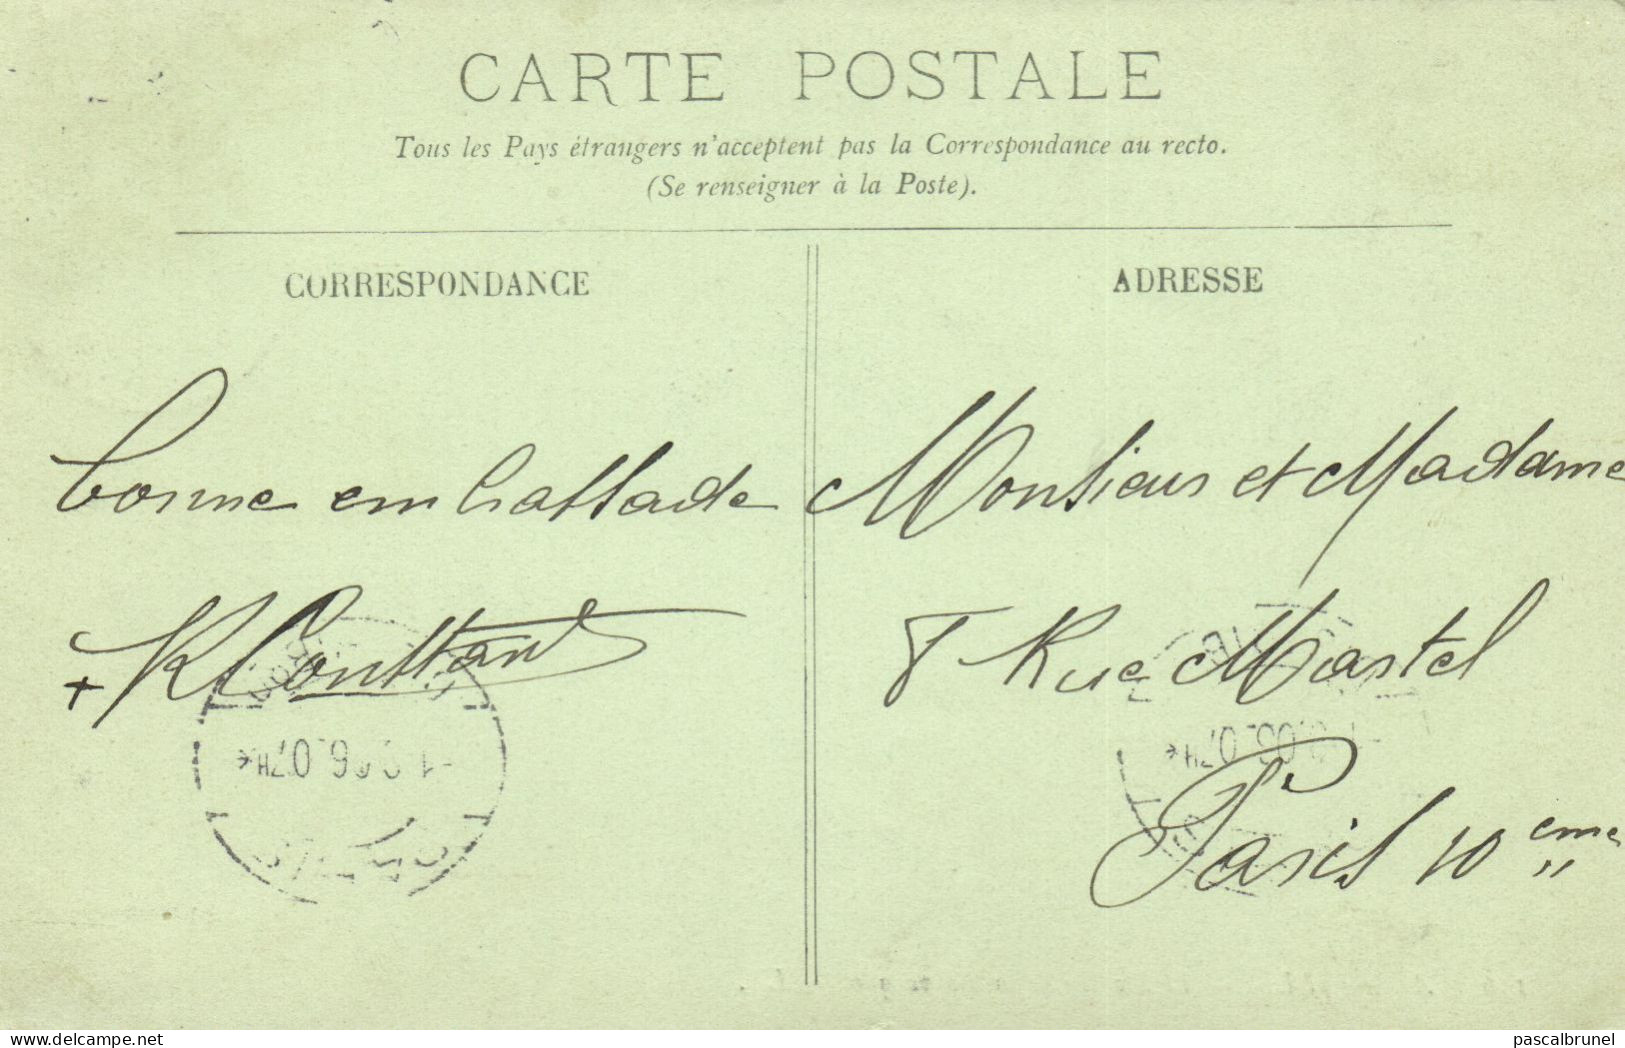 CARTE POSTALE
Tous les Pays étrangers n'acceptent pas la Correspondance au recto.
(Se renseigner à la Poste).
CORRESPONDANCE
ADRESSE
bonne em
Monsieur et Madame
8 Rue Martel
Paris 10 eme
delcampe.net
pascalbrunel